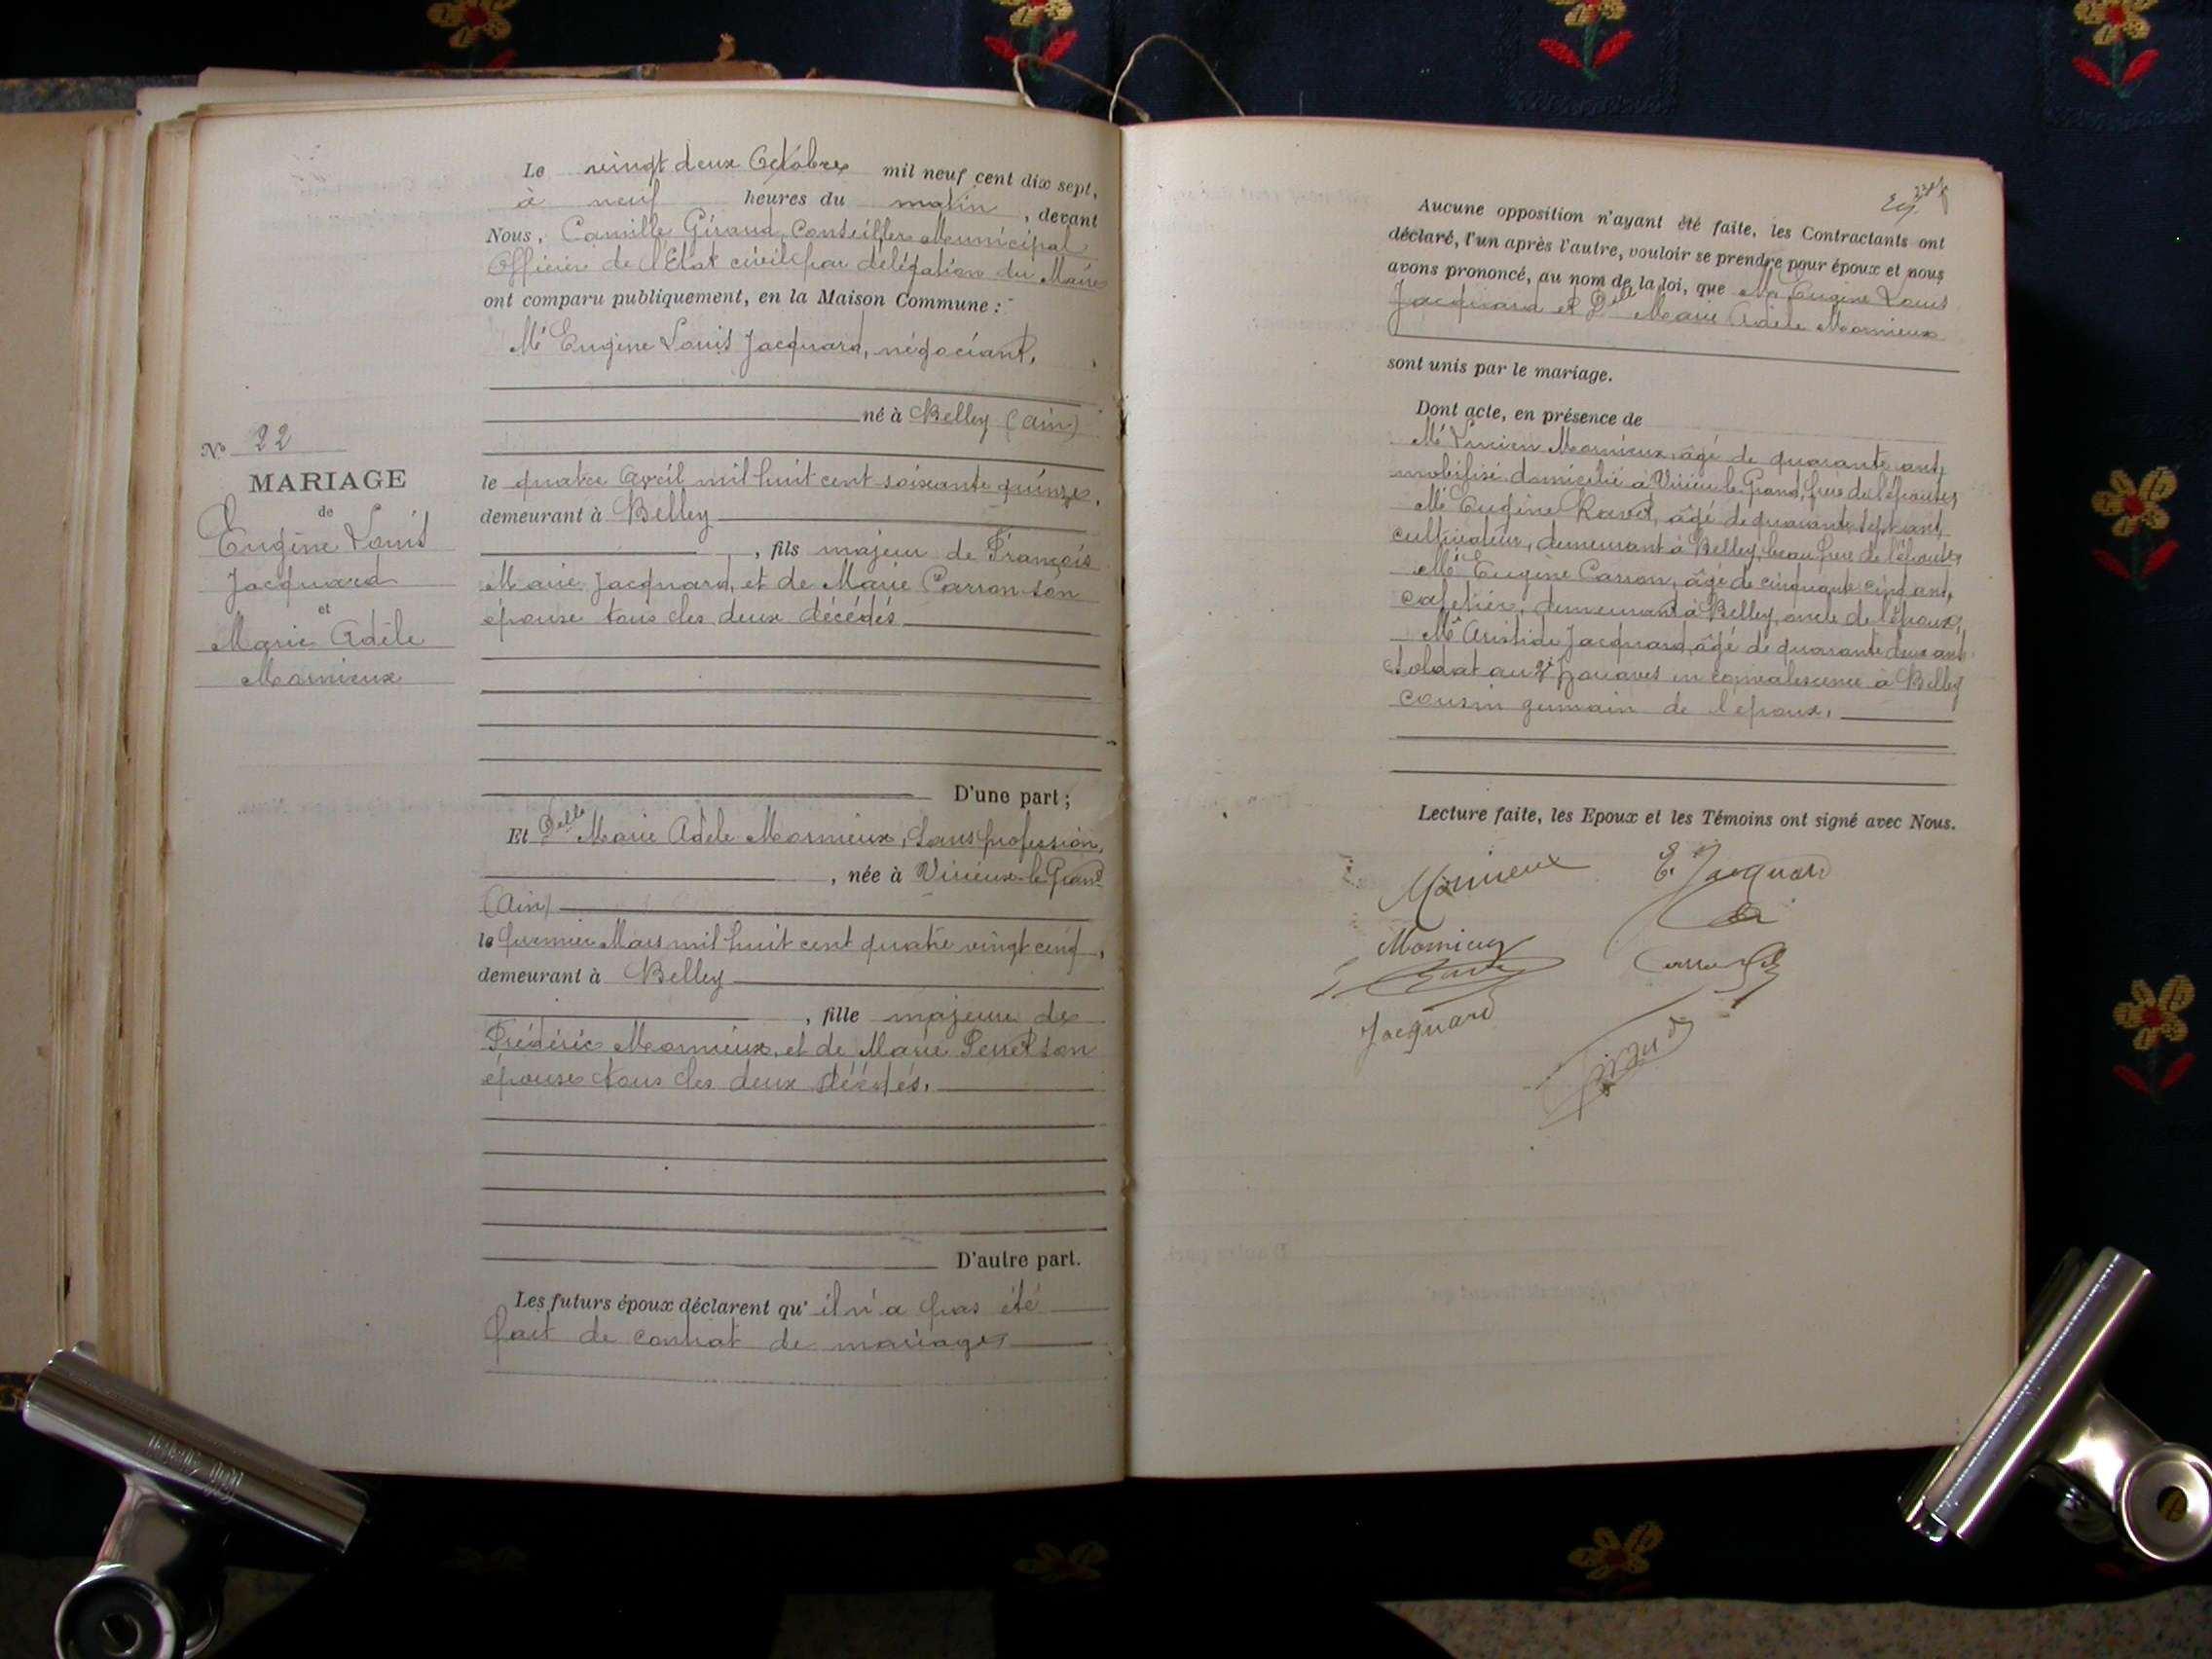 Le vingt deux Octobre mil neuf cent dix sept,
à neuf heures du matin, devant
Nous, Camille Giraud, Conseiller Municipal
Officier de l'Etat civil par délégation du Maire
ont comparu publiquement, en la Maison Commune :
Mr Eugène Louis Jacquard, négociant,
né à Belley (Ain)
No 22
MARIAGE
de
Eugène Louis
Jacquard
et
Marie Adèle
Mornieux
le quatre Avril mil huit cent soixante quinze,
demeurant à Belley
, fils majeur de François
Marie Jacquard, et de Marie Carron son
épouse tous les deux décédés
D'une part ;
Et Delle Marie Adèle Mornieux, sans profession,
, née à Virieux-le-Grand
(Ain)
le premier Mars mil huit cent quatre vingt cinq,
demeurant à Belley
, fille majeure de
Frédéric Mornieux, et de Marie Perret son
épouse tous les deux décédés.
D'autre part.
Les futurs époux déclarent qu'il n'a pas été
fait de contrat de mariage
Aucune opposition n'ayant été faite, les Contractants ont
déclaré, l'un après l'autre, vouloir se prendre pour époux et nous
avons prononcé, au nom de la loi, que Mr Eugène Louis
Jacquard et Delle Marie Adèle Mornieux
sont unis par le mariage.
Dont acte, en présence de
Mr Lucien Mornieux, âgé de quarante ans,
mobilisé domicilié à Virieu le Grand, frère de l'épouse,
Mr Eugène Ravet, âgé de quarante sept ans,
cultivateur, demeurant à Belley, beau frère de l'épouse,
Mr Eugène Carron, âgé de cinquante cinq ans,
cafetier, demeurant à Belley, oncle de l'époux,
Mr Aristide Jacquard, âgé de quarante deux ans
soldat au 2e Zouaves en convalescence à Belley
cousin germain de l'époux.
Lecture faite, les Epoux et les Témoins ont signé avec Nous.
Mornieux
E. Jacquard
Mornieux
Jacquard
Giraud